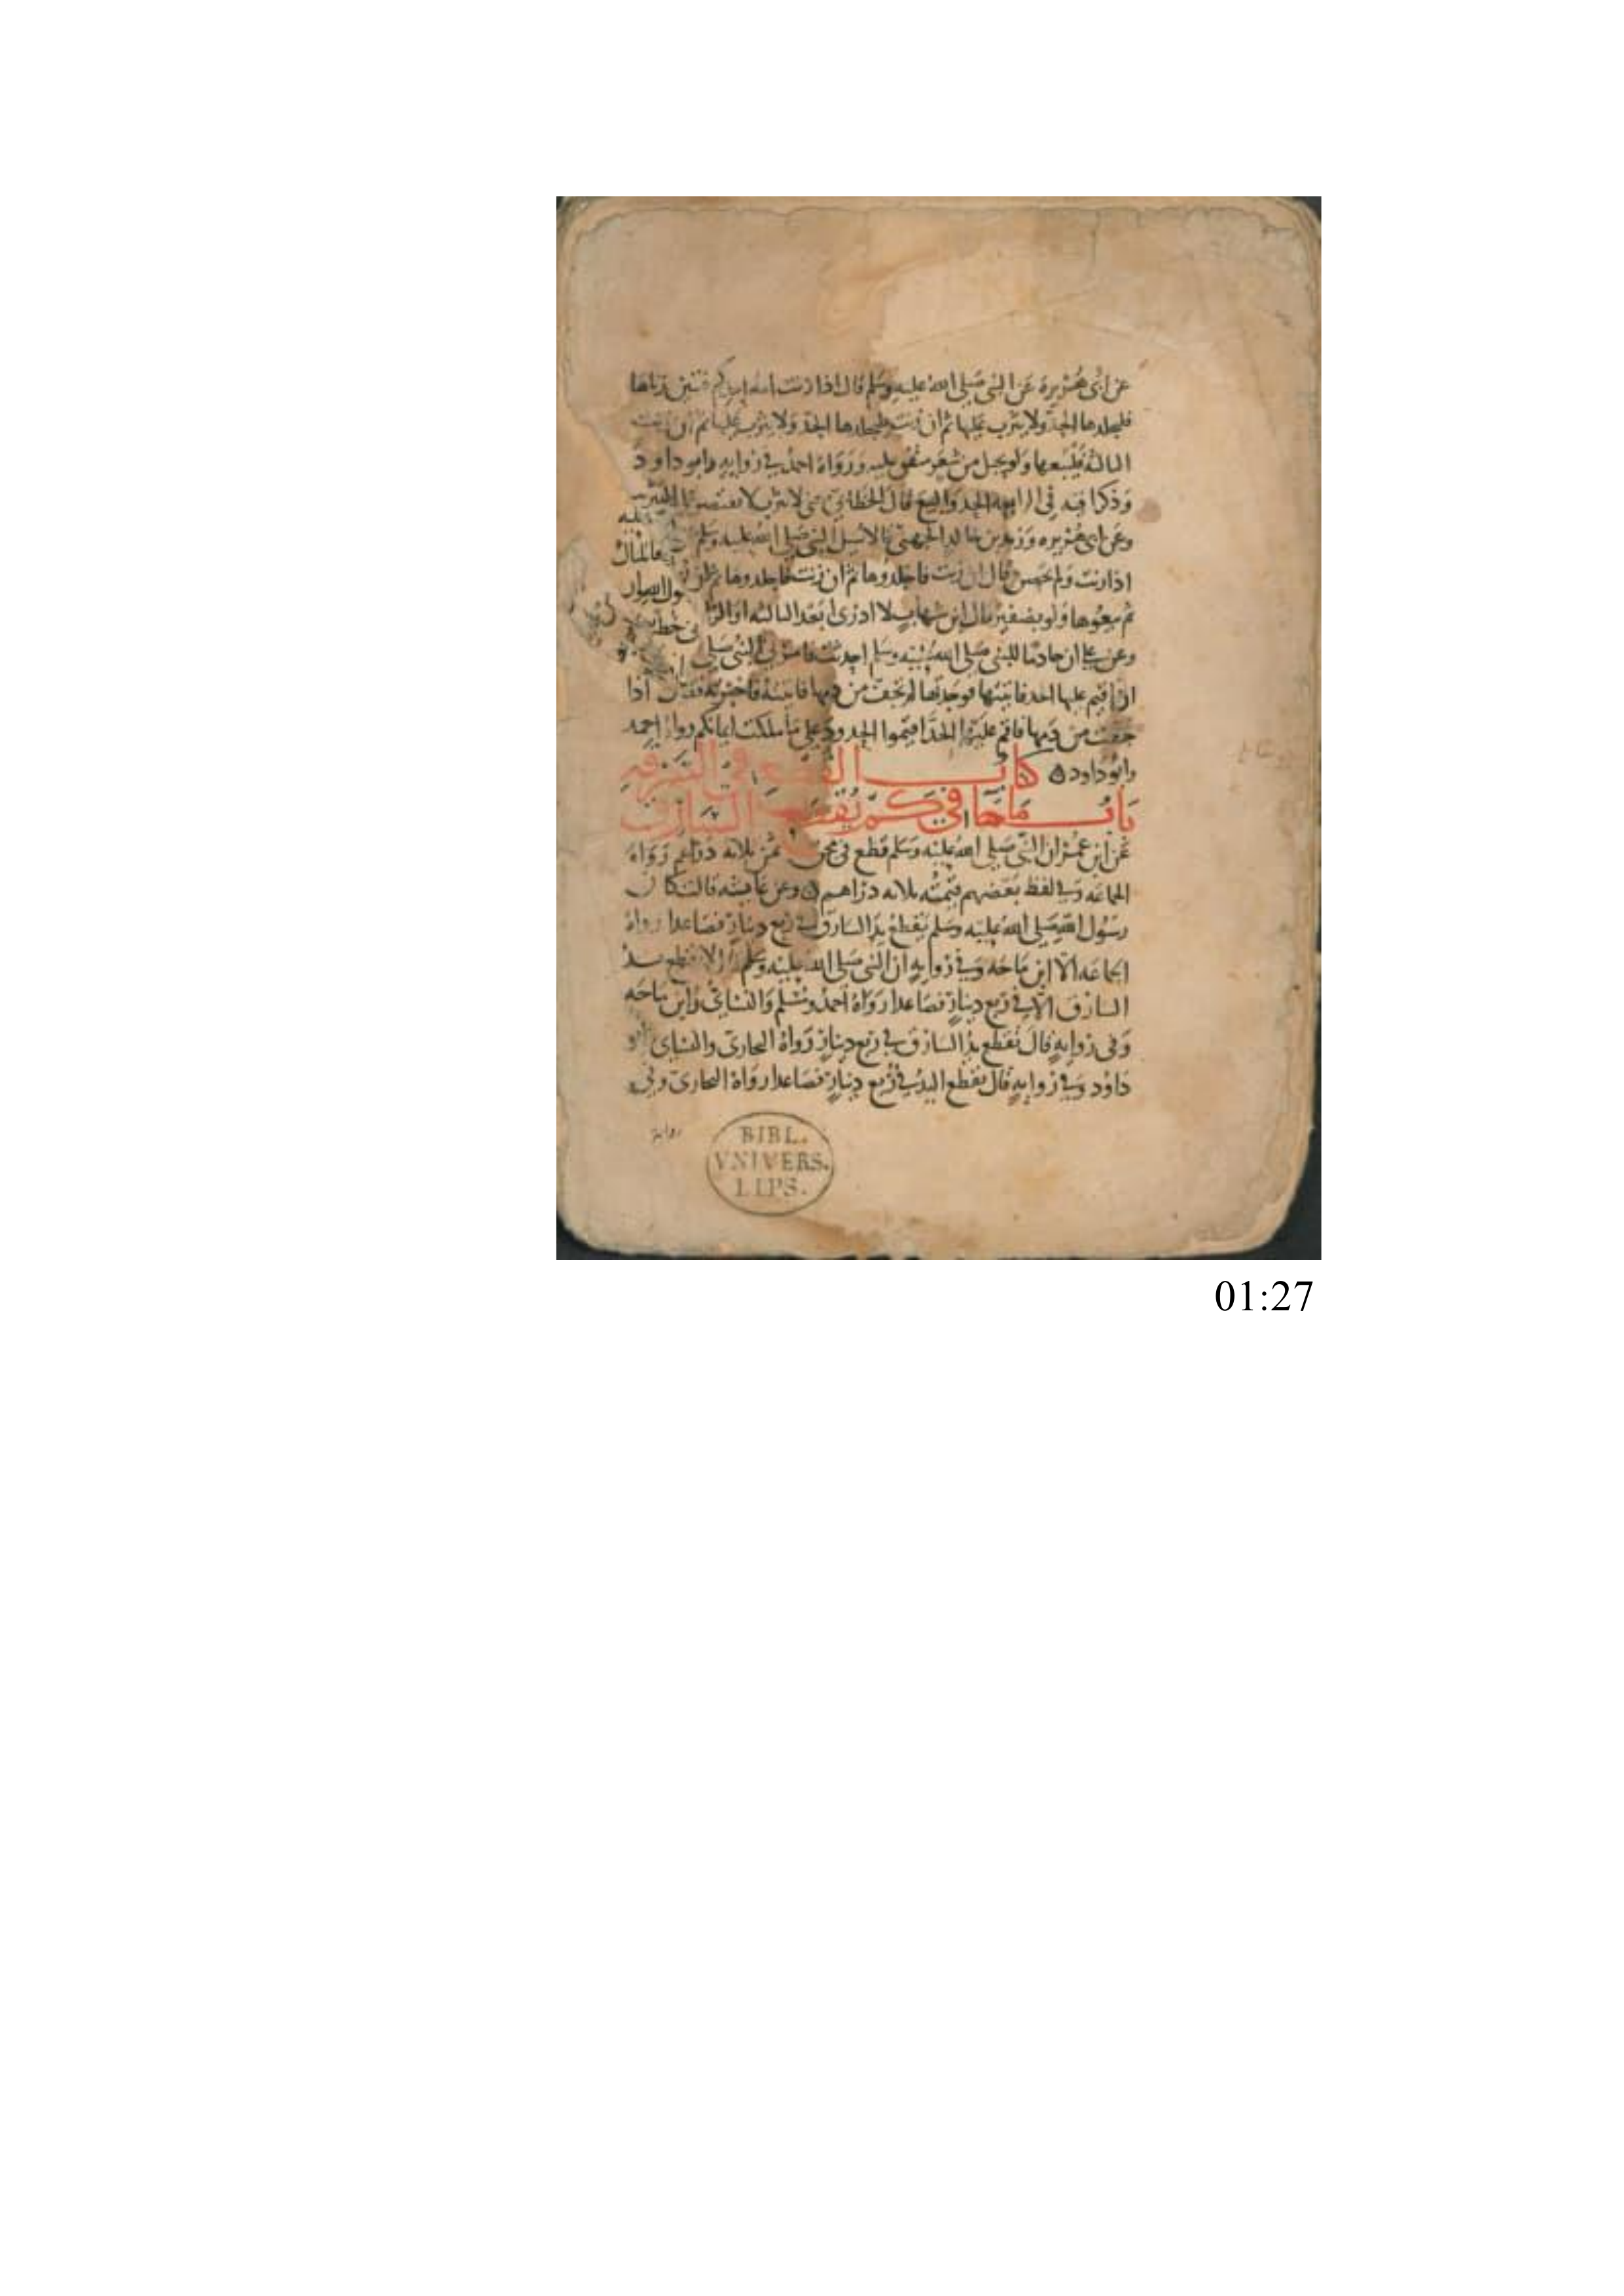 عن أبي هريرة عن النبي صلى الله عليه وسلم قال اذا زنت امه احدكم فتبين زناها
فليجلدها الحد ولا يثرب عليها ثم ان زنت فليجلدها الحد ولا يثرب عليها ثم ان زنت
الثالثة فليبعها ولو بحبل من شعر متفق عليه ورواه احمد في رواية وابو داود
وذكرا فيه في الرابعة الحد والبيع قال الخطابي معنى لا يثرب لا يقتصر على التثريب
وعن ابي هريره وزيد بن خالد الجهني قالا سئل النبي صلى الله عليه وسلم
اذا زنت ولم تحصن قال ان زنت فاجلدوها ثم ان زنت فاجلدوها ثم ان
ثم بيعوها ولو بضفير قال ابن شهاب لا ادري ابعد الثالثه او الرا
وعن علي ان خادما للنبي صلى الله عليه وسلم احدثت فامرني النبي صلى
ان اقيم عليها الحد فاتيتها فوجدتها لم تجف من دمها فاتيته فاخبرته فقال اذا
جفت من دمها فاقم عليها الحد اقيموا الحدود على ما ملكت ايمانكم رواه احمد
وابو داود ۞ كتاب القطع في السرقه
باب ما جا في كم يقطع السارق
عن ابن عمر ان النبي صلى الله عليه وسلم قطع في مجن ثمنه ثلاثه دراهم رواه
الجماعه وفي لفظ بعضهم قيمته ثلاثه دراهم ۞ وعن عايشه قالت كان
رسول الله صلى الله عليه وسلم يقطع يد السارق في ربع دينار فصاعدا رواه
الجماعه الا ابن ماجه وفي رواية ان النبي صلى الله عليه وسلم قال لا تقطع يد
السارق الا في ربع دينار فصاعدا رواه احمد ومسلم والنسائي وابن ماجه
وفي رواية قال تقطع يد السارق في ربع دينار رواه البخاري والنسائي وابو
داود وفي رواية قال تقطع اليد في ربع دينار فصاعدا رواه البخاري وفي
رواية
BIBL.
VNIVERS.
LIPS.
01:27